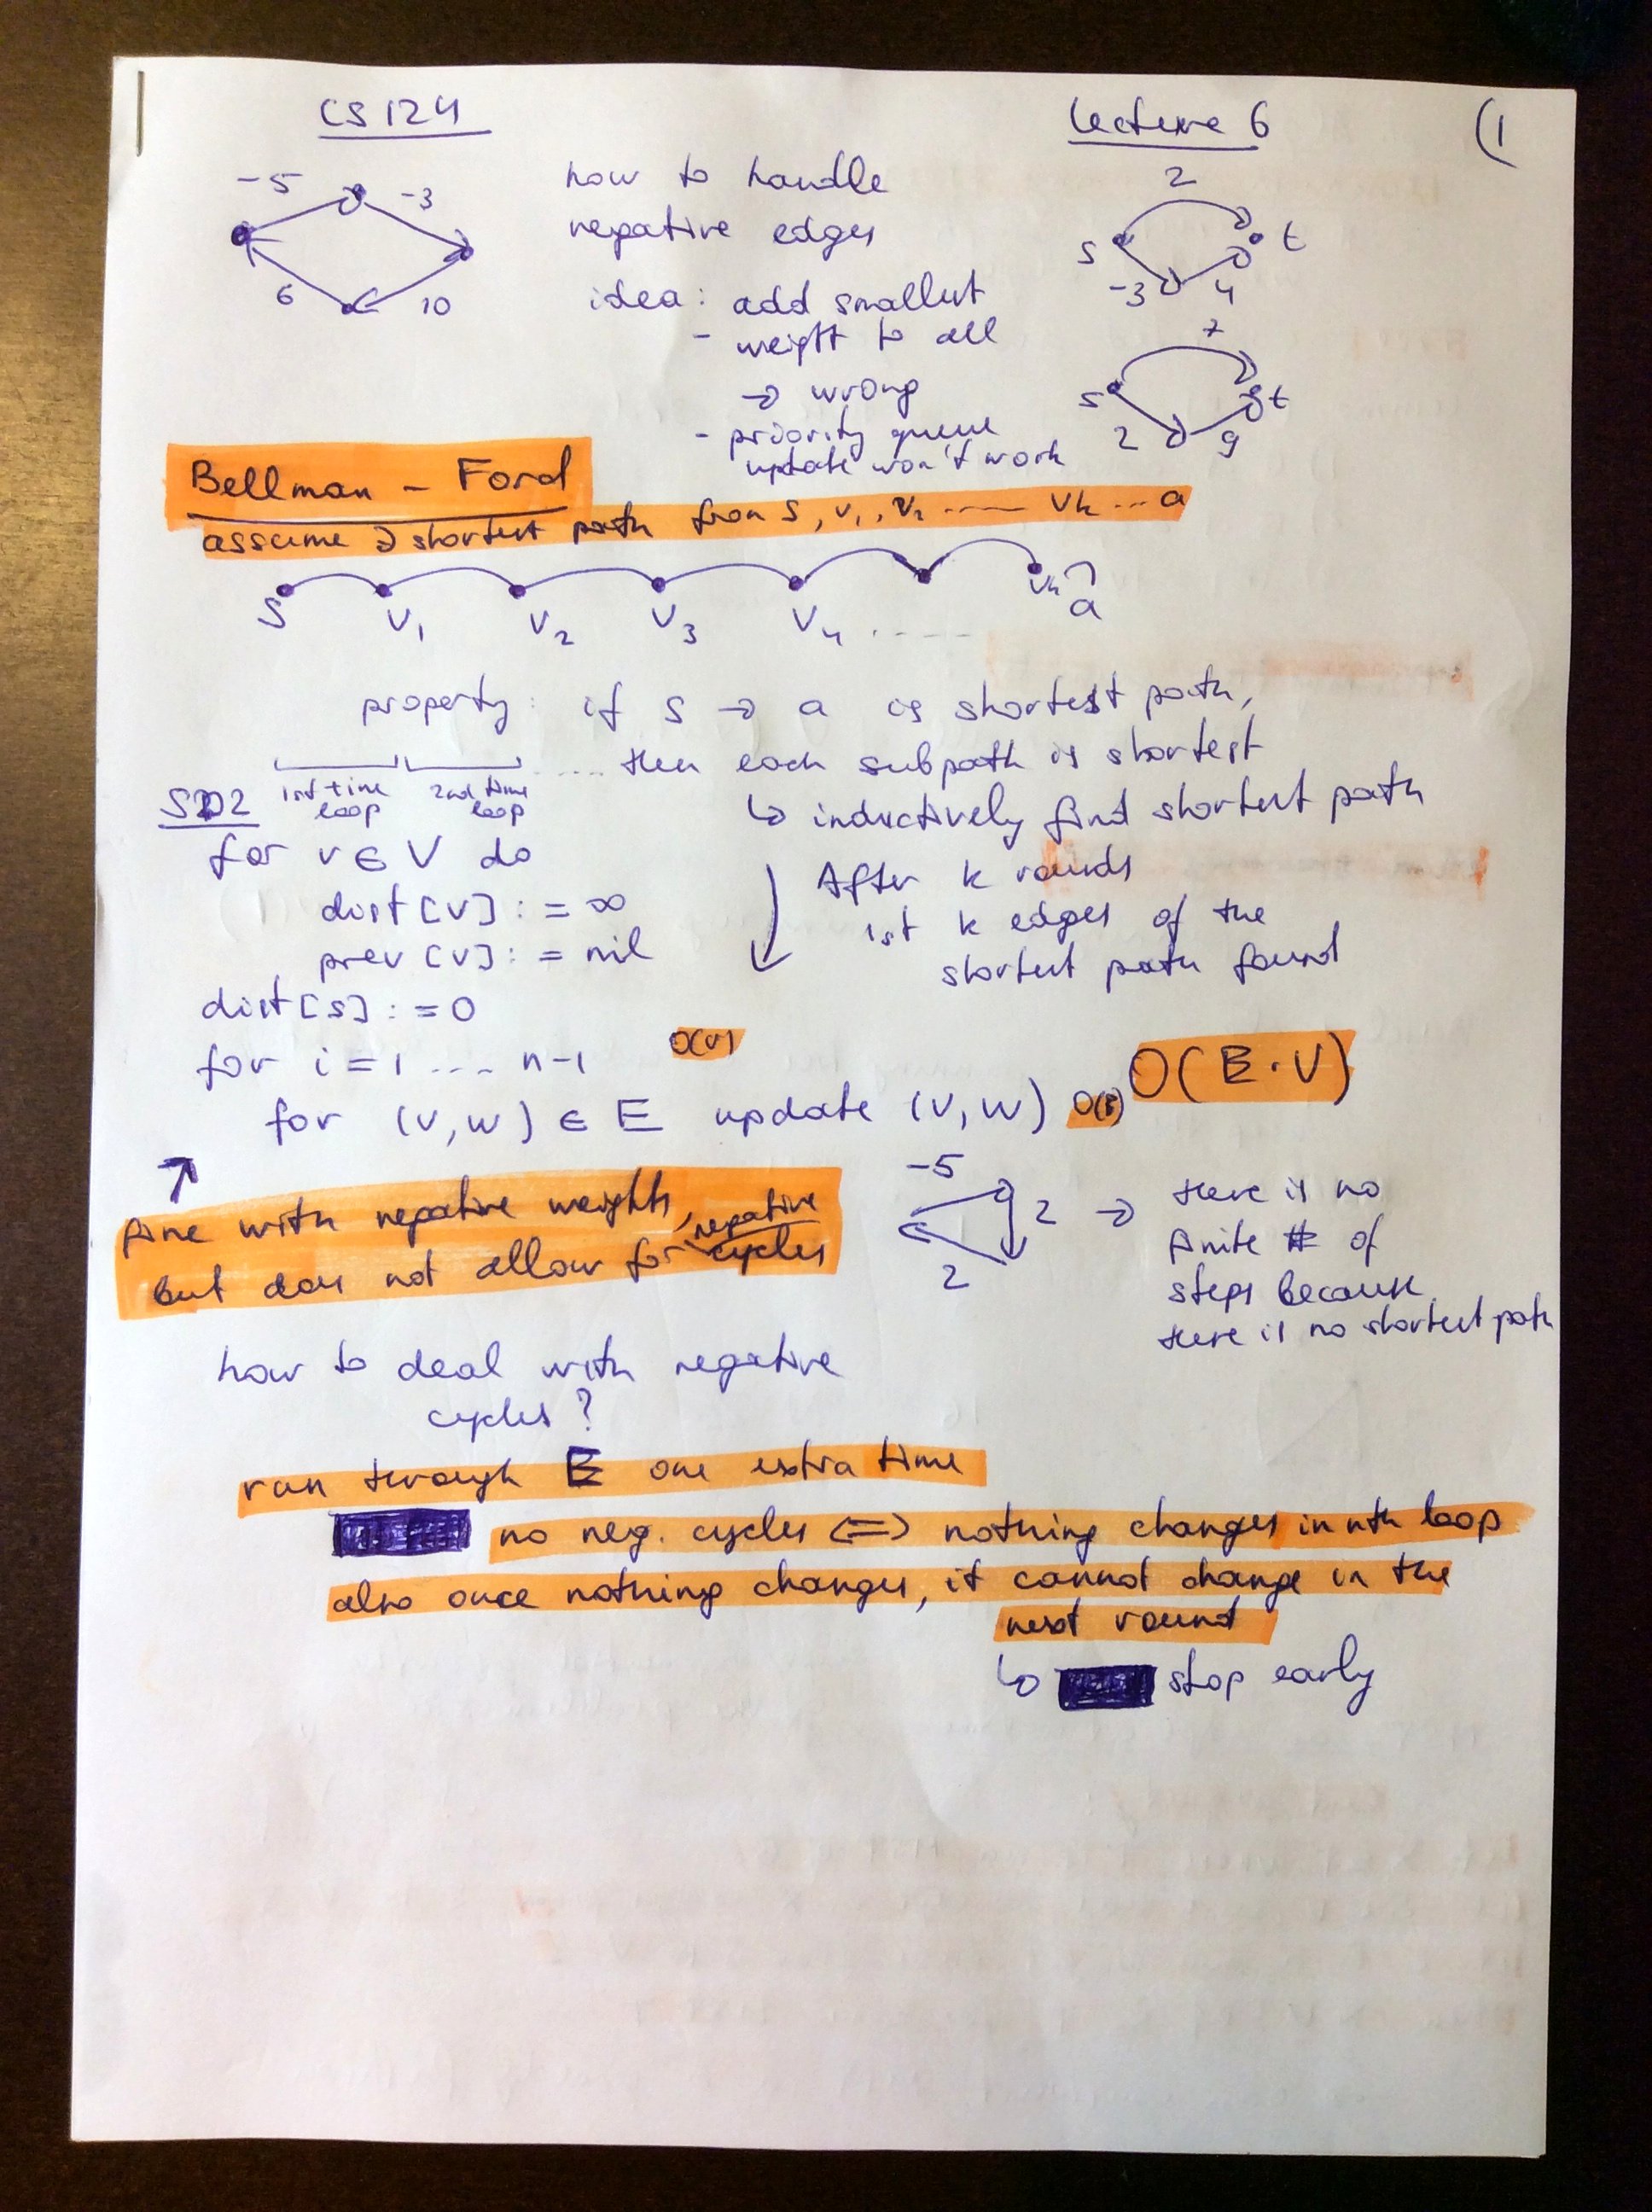 CS 124
Lecture 6
(1
-5
-3
6
10
how to handle
negative edges
idea: add smallest
- weight to all
→ wrong
- priority queue
update won't work
2
s
t
-3
4
7
s
t
2
9
Bellman - Ford
assume ∃ shortest path from s, v1, v2 ..... vk ... a
s v1 v2 v3 v4 ..... vk a
property: if s → a is shortest path,
.... then each subpath is shortest
1st time loop
2nd time loop
↳ inductively find shortest path
for v ∈ V do
dist[v] := ∞
prev[v] := nil
dist[s] := 0
After k rounds
1st k edges of the
shortest path found
for i = 1 ... n-1 O(V)
for (v,w) ∈ E update (v,w) O(E)
O(E·V)
↑
fine with negative weights,
but does not allow for negative cycles
-5
2
2
→ there is no
finite # of
steps because
there is no shortest path
how to deal with negative
cycles?
run through E one extra time
no neg. cycles <=> nothing changes in nth loop
also once nothing changes, it cannot change in the
next round
↳ stop early